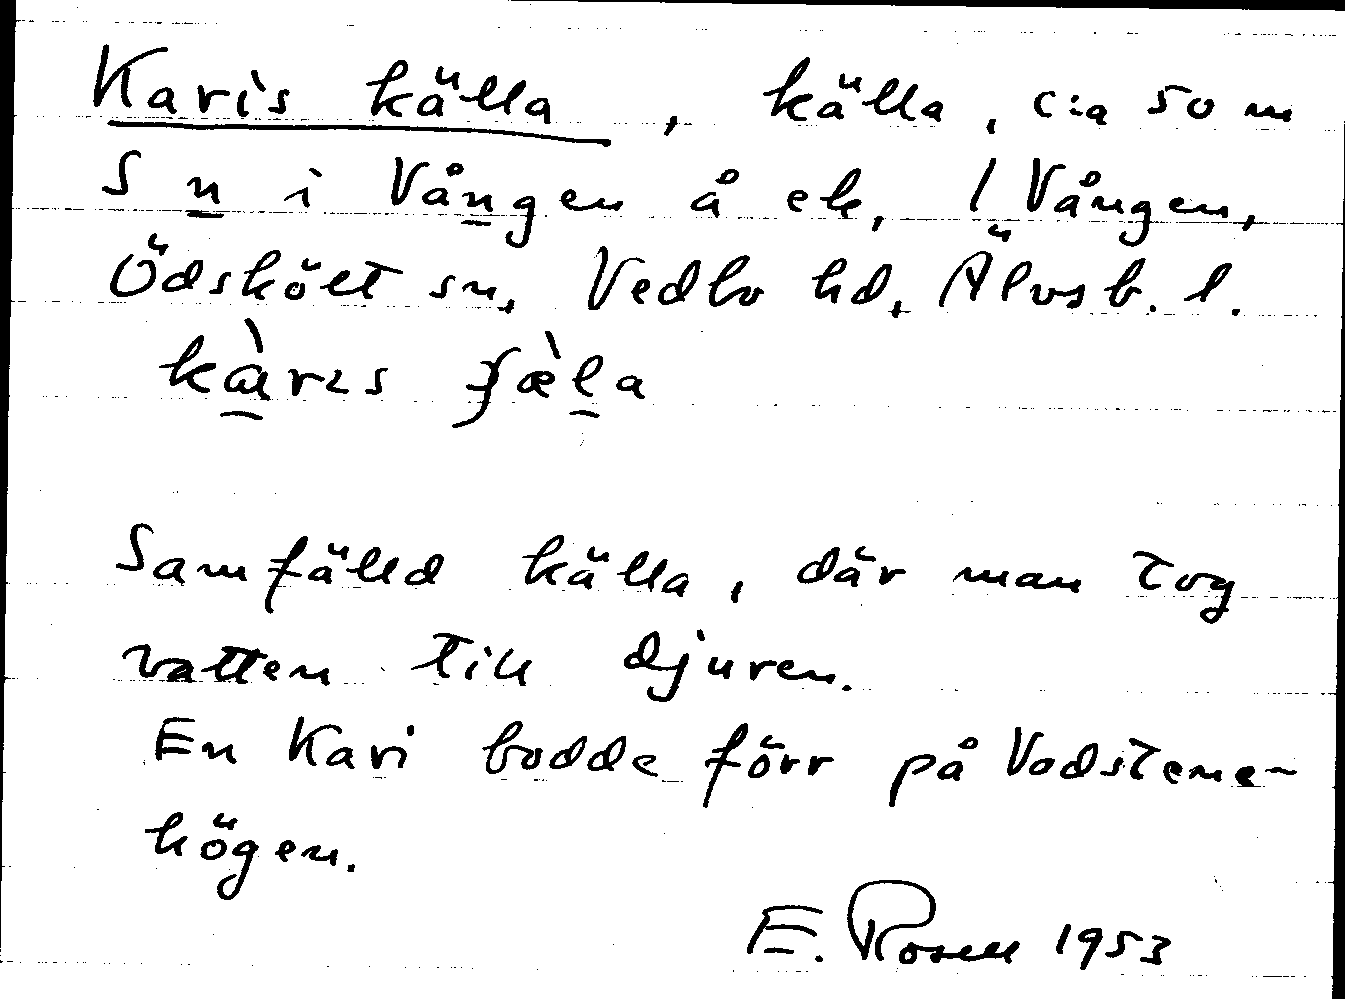 Karis källa, källa, c:a 50 m
S n i Vången å ek, 1 Vången,
Ödsköłt sn, Vedbo hd, Älvsb. l.
kàrɩs ʃæ̀la
Samfälld källa, där man tog
vatten till djuren.
En Kari bodde förr på Vadstene-
högen.
E. Rosell 1953